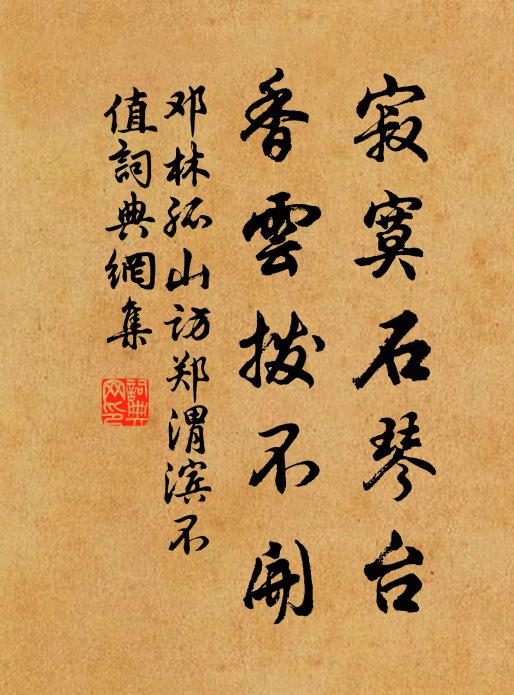 寂寞石琴台
香雲撥不開
邓林孤山访郑渭滨不
值詞典網集
詞典网印